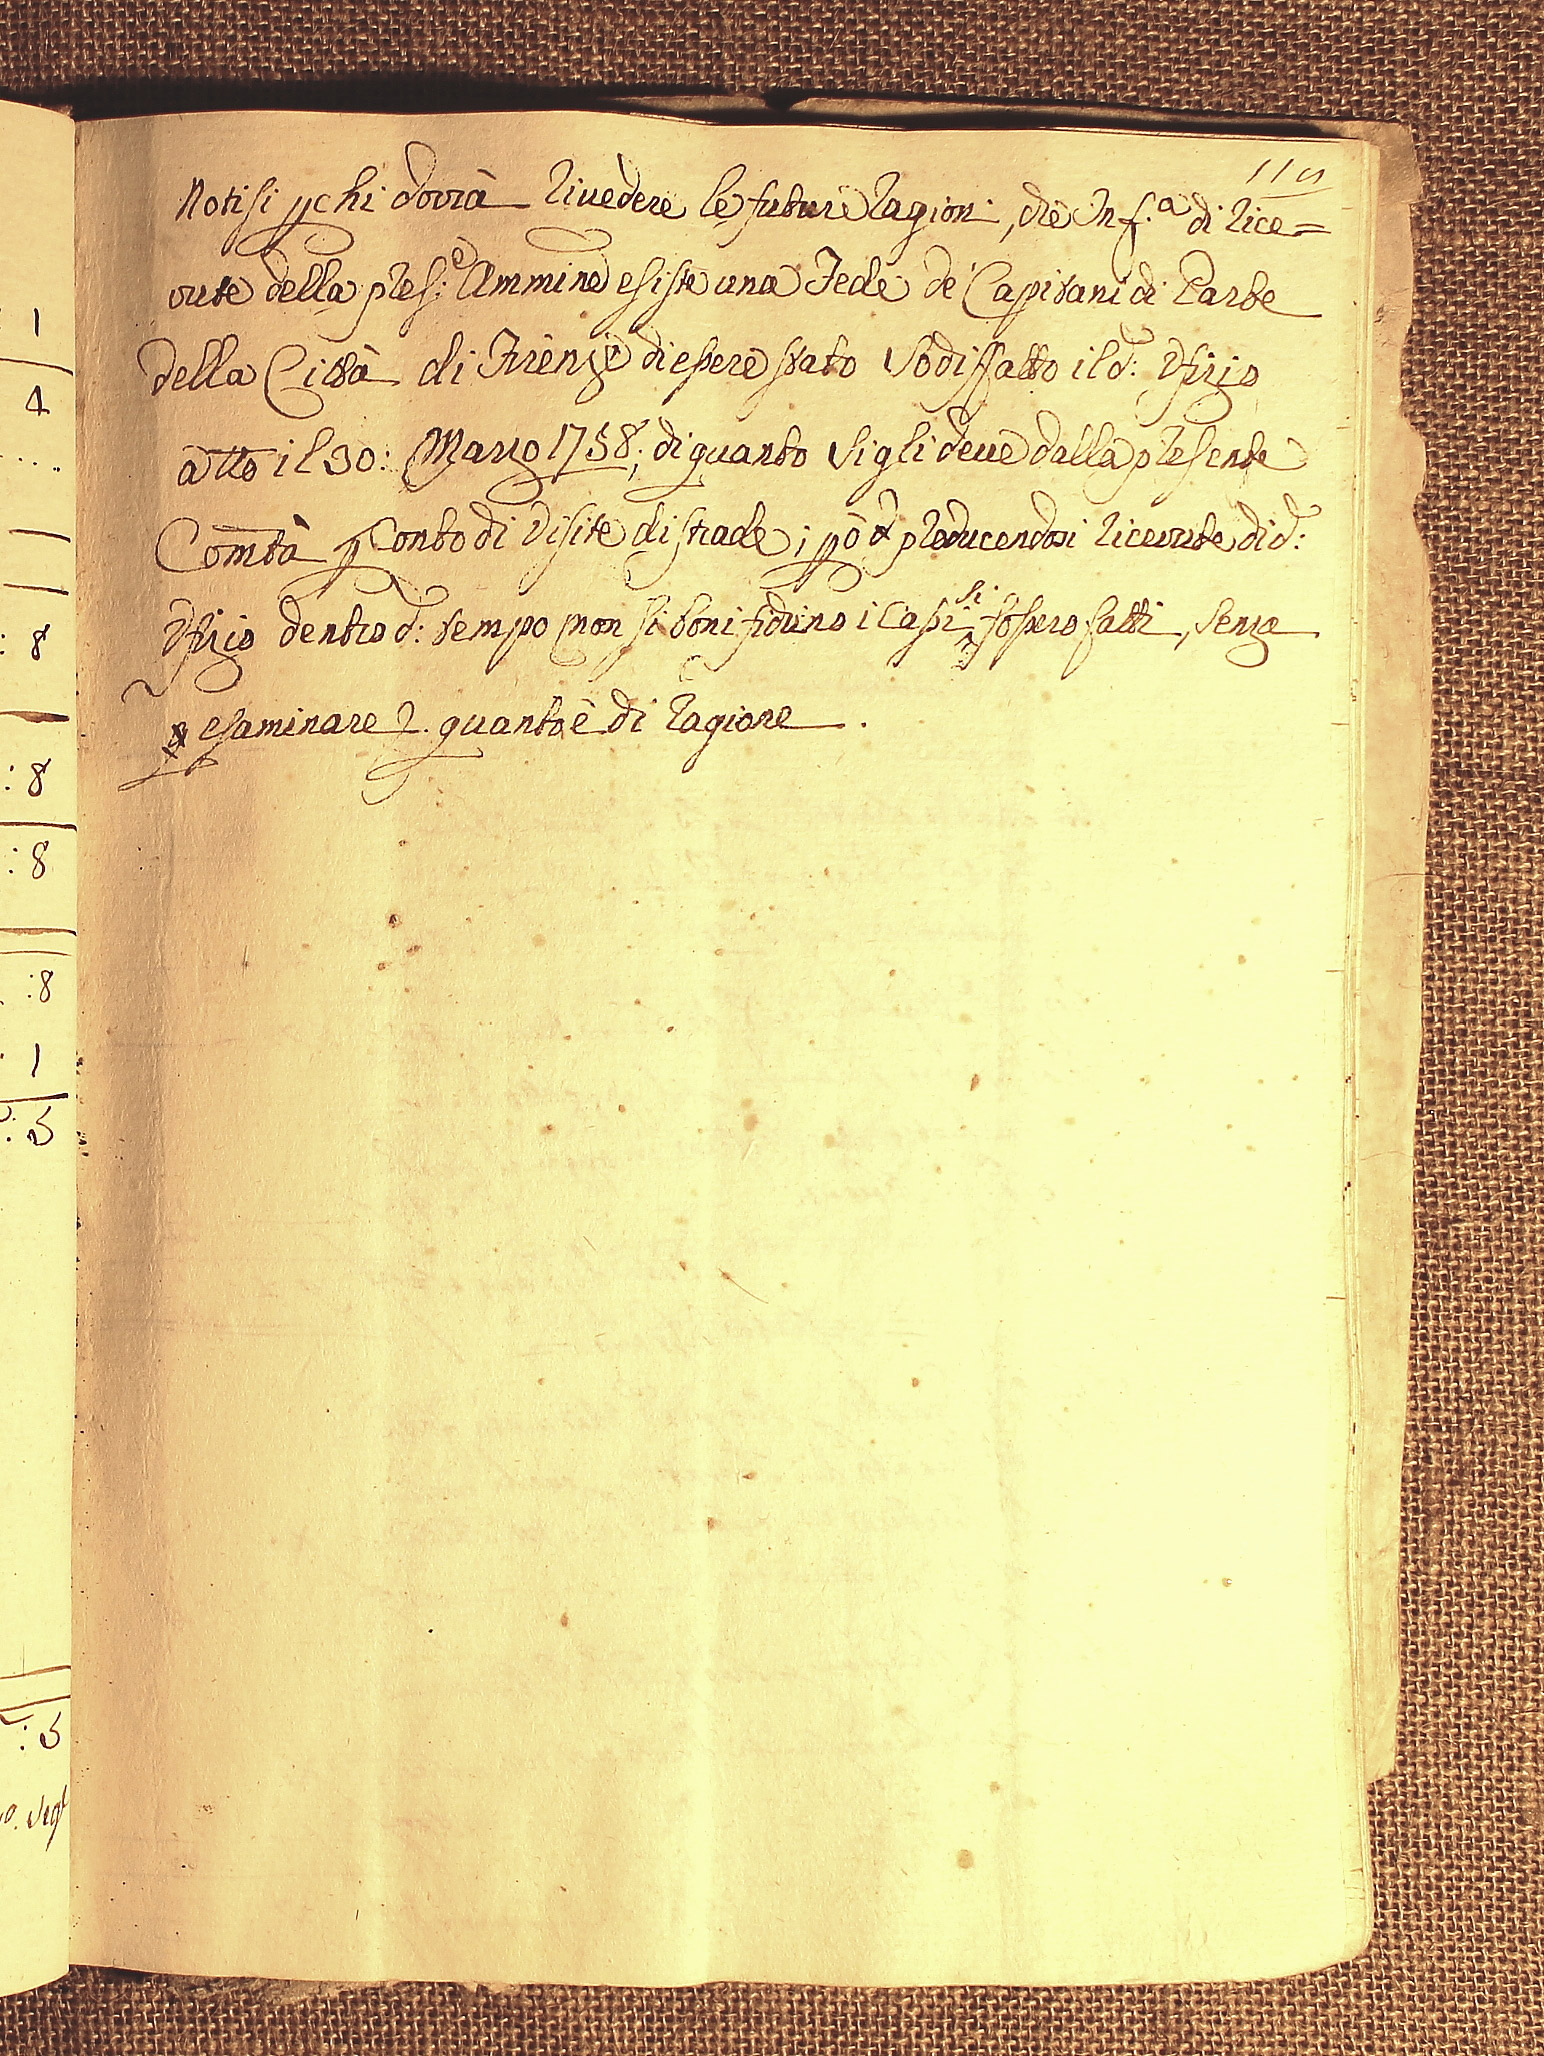 119
Notisi p chi dovrà rivedere le future ragioni, che in f.a di rice=
vute della pres:e Ammine esiste una Fede de Capitani di Parte
della Città di Firenze di essere stato sodisfatto il d: Ufizio
a tto il 30: Marzo 1758; di quanto si gli deve dalla presente
Comtà p Conto di visite di strade; ppò producendosi ricevute di d:
Ufizio dentro d: tempo non si bonifichino i Cassi si fossero fatti, senza
esaminare p. quanto è di ragione.
1
4
: 8
: 8
: 8
: 8
: 1
: 5
: 5